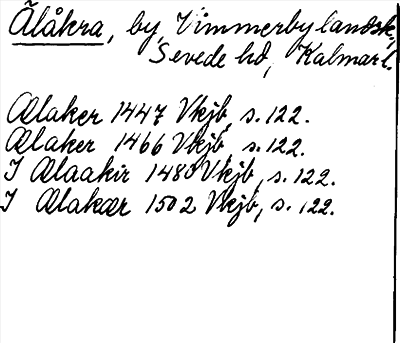 Ålåkra, by, Vimmerby landsk.,
Sevede hd, Kalmar l.
Ælaker 1447 Vkjb, s. 122.
Ælaker 1466 Vkjb, s. 122.
I Ælaakir 1480 Vkjb, s. 122.
I Ælakær 1502 Vkjb, s. 122.